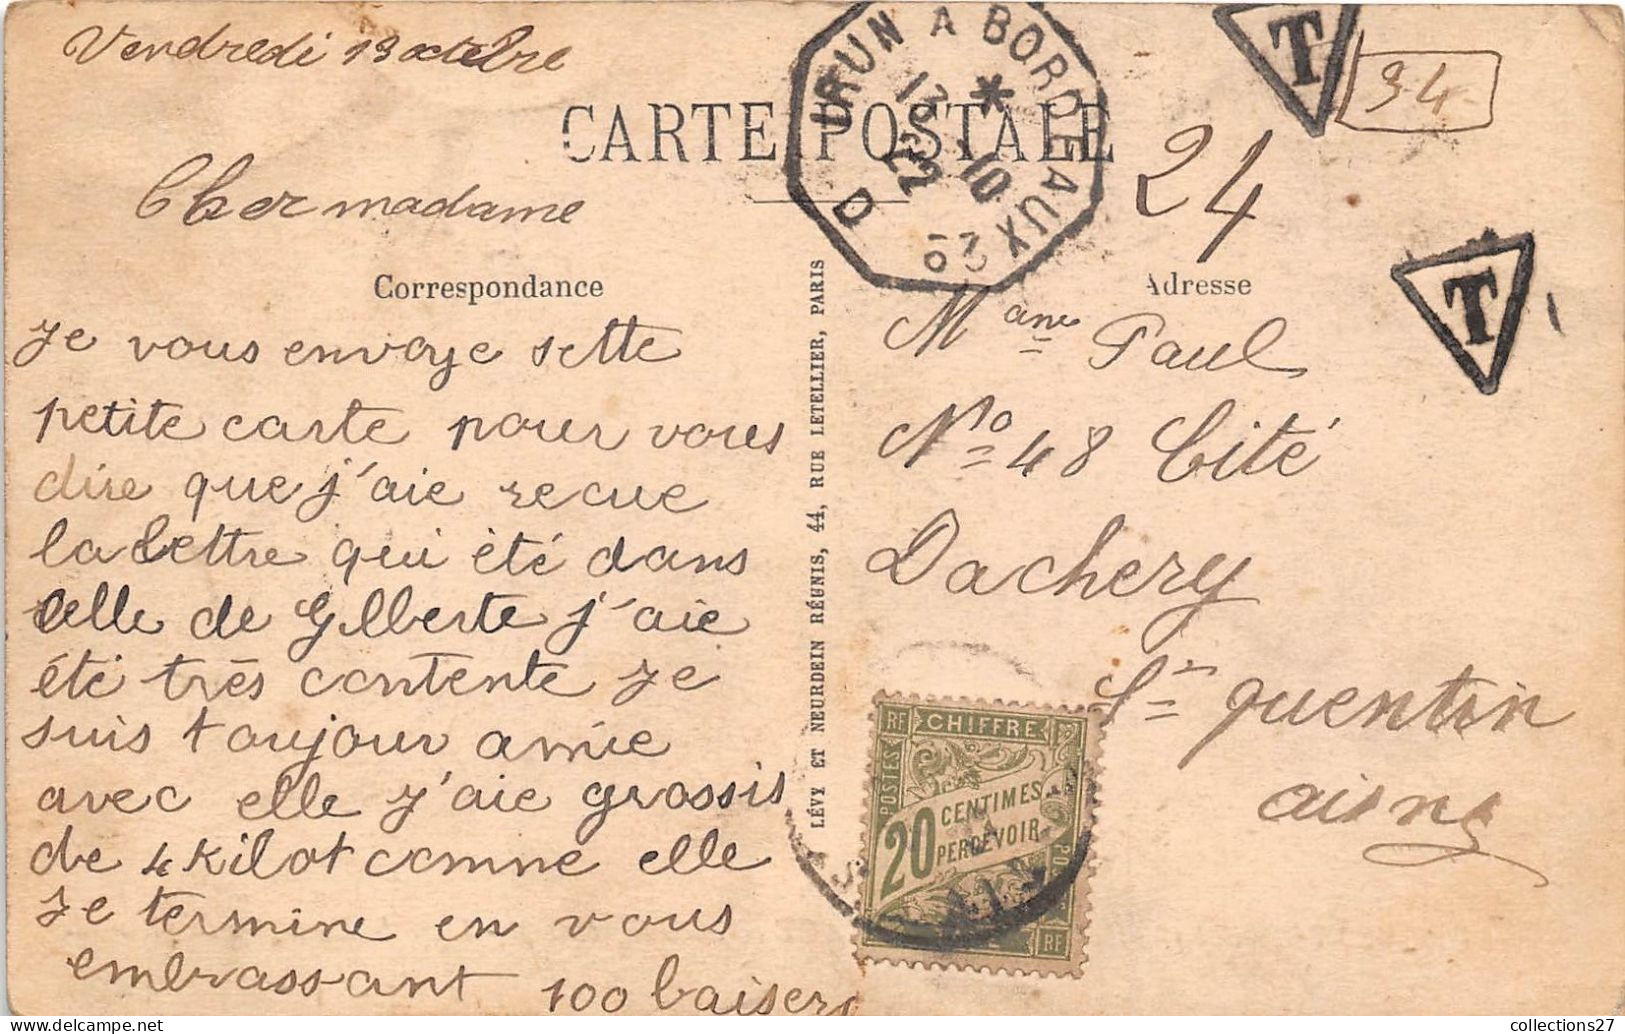 Vendredi 13 octobre
CARTE POSTALE
IRUN A BORDEAUX 2°
13
10
22
D
T
34
24
T
Cher madame
Correspondance
Je vous envoye sette
petite carte pour vous
dire que j'aie recue
la lettre qui été dans
celle de Gilberte j'aie
été très contente je
suis toujour amie
avec elle j'aie grossis
de 4 kilot comme elle
Je termine en vous
embrassant 100 baisers
LÉVY ET NEURDEIN RÉUNIS, 44, RUE LETELLIER, PARIS
Adresse
Mame Paul
No 48 Cité
Dachery
St quentin
aisne
RF CHIFFRE
POSTES
20 CENTIMES
A
PERCEVOIR
RF
collections27